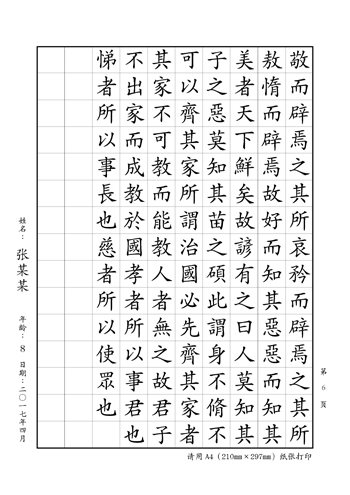 敬而辟焉之其所哀矜而辟焉之其所
敖惰而辟焉故好而知其惡惡而知其
美者天下鮮矣故諺有之曰人莫知其
子之惡莫知其苗之碩此謂身不脩不
可以齊其家所謂治國必先齊其家者
其家不可教而能教人者無之故君子
不出家而成教於國孝者所以事君也
悌者所以事長也慈者所以使眾也
姓名：张某某 年龄：8 日期：二〇一七年四月
第 6 页
请用A4（210mm×297mm）纸张打印